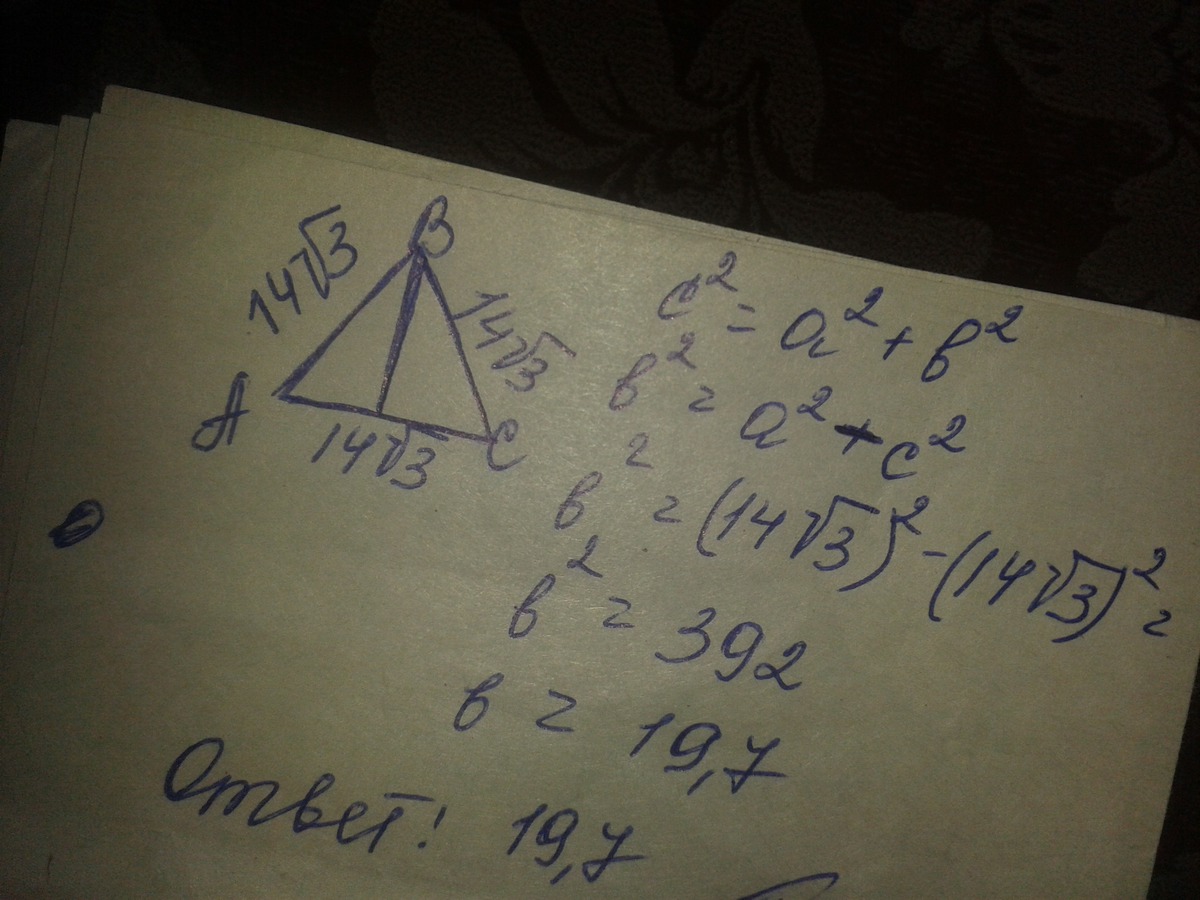 B
14√3
14√3
A
14√3
C
c² = a² + в²
в² = a² + c²
в² = (14√3)² - (14√3)² =
в² = 392
в = 19,7
Ответ! 19,7